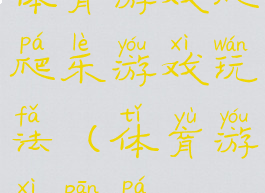 体育游戏
pá lè yóu xì wán
爬乐游戏玩
fǎ tǐ yù yóu
法（体育游
xì pān pá